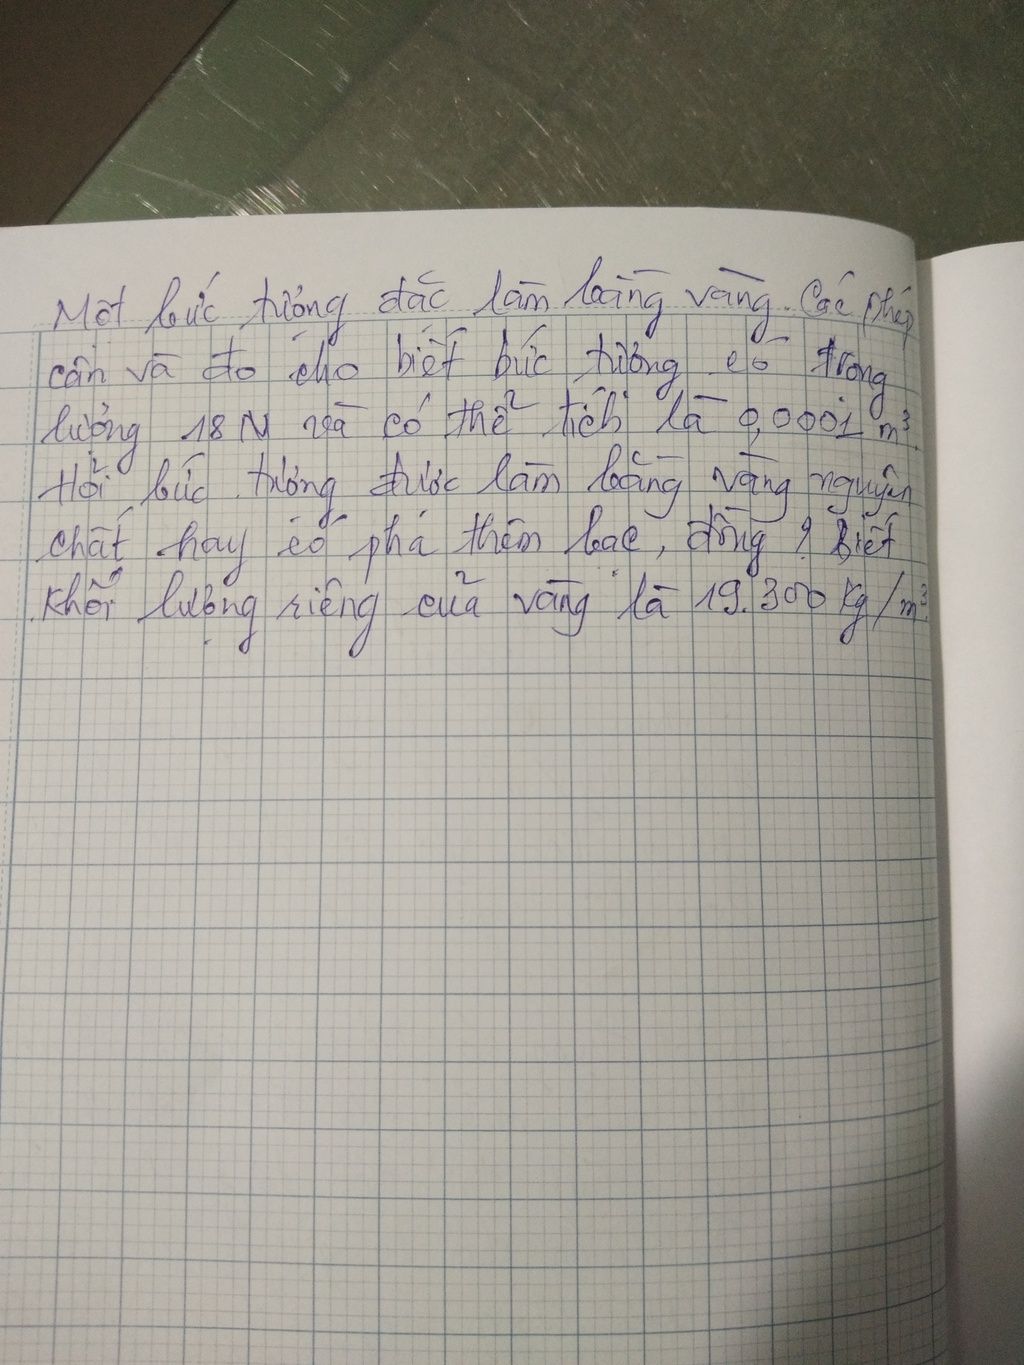 Một bức tượng đặc làm bằng vàng. Các phép
cân và đo cho biết bức tượng có trọng
lượng 18N và có thể tích là 0,0001 m³.
Hỏi bức tượng được làm bằng vàng nguyên
chất hay có pha thêm bạc, đồng? Biết
khối lượng riêng của vàng là 19.300 kg/m³.